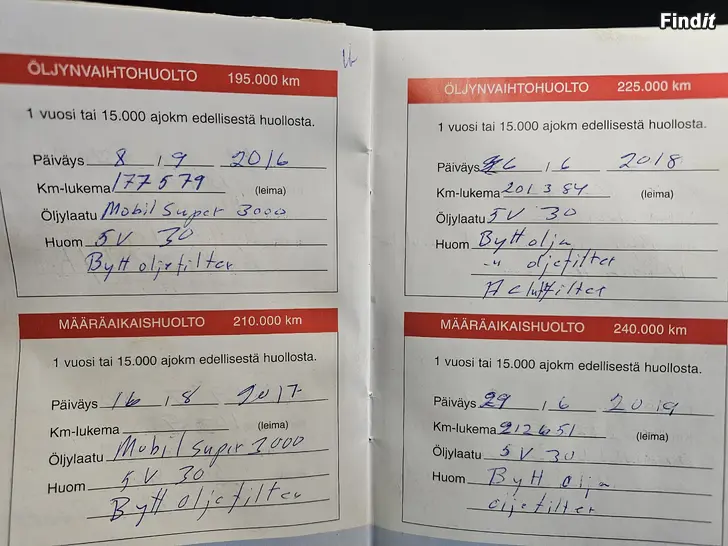 Findit
ÖLJYNVAIHTOHUOLTO 195.000 km
1 vuosi tai 15.000 ajokm edellisestä huollosta.
Päiväys 8 / 9 2016
Km-lukema 177579 (leima)
Öljylaatu Mobil Super 3000
Huom 5V 30
Bytt oljefilter
MÄÄRÄAIKAISHUOLTO 210.000 km
1 vuosi tai 15.000 ajokm edellisestä huollosta.
Päiväys 16 / 8 2017
Km-lukema (leima)
Öljylaatu Mobil Super 3000
Huom 5V 30
Bytt oljefilter
ÖLJYNVAIHTOHUOLTO 225.000 km
1 vuosi tai 15.000 ajokm edellisestä huollosta.
Päiväys 26 / 6 2018
Km-lukema 201384 (leima)
Öljylaatu 5V 30
Huom Bytt olja
-"- oljefilter
AC luftfilter
MÄÄRÄAIKAISHUOLTO 240.000 km
1 vuosi tai 15.000 ajokm edellisestä huollosta.
Päiväys 29 / 6 2019
Km-lukema 212651 (leima)
Öljylaatu 5V 30
Huom Bytt olja
oljefilter